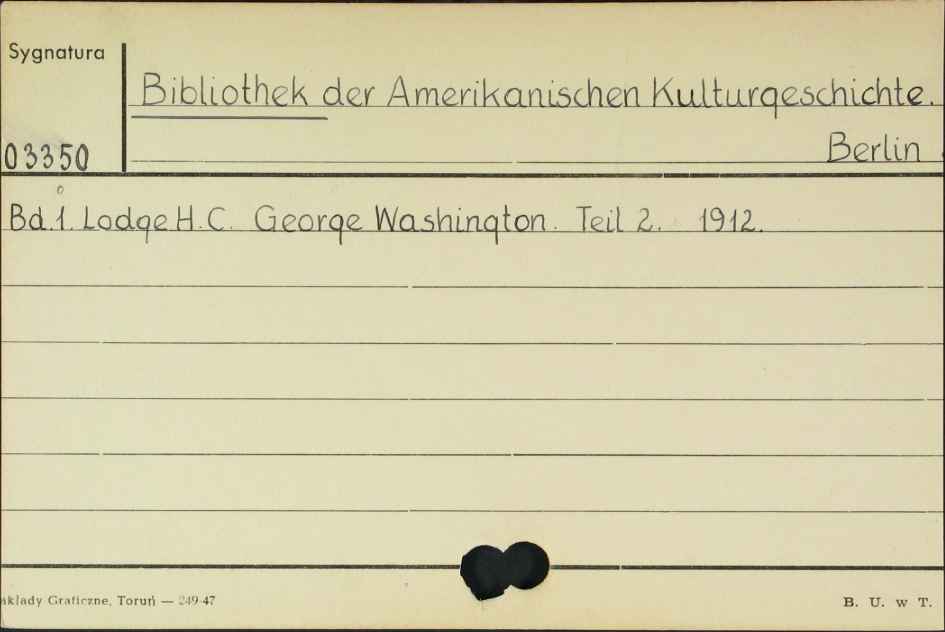 Sygnatura
Bibliothek der Amerikanischen Kulturgeschichte.
03350
Berlin
Bd. 1. Lodge H. C. George Washington. Teil 2. 1912.
akłady Graficzne, Toruń — 249-47
B. U. w T.